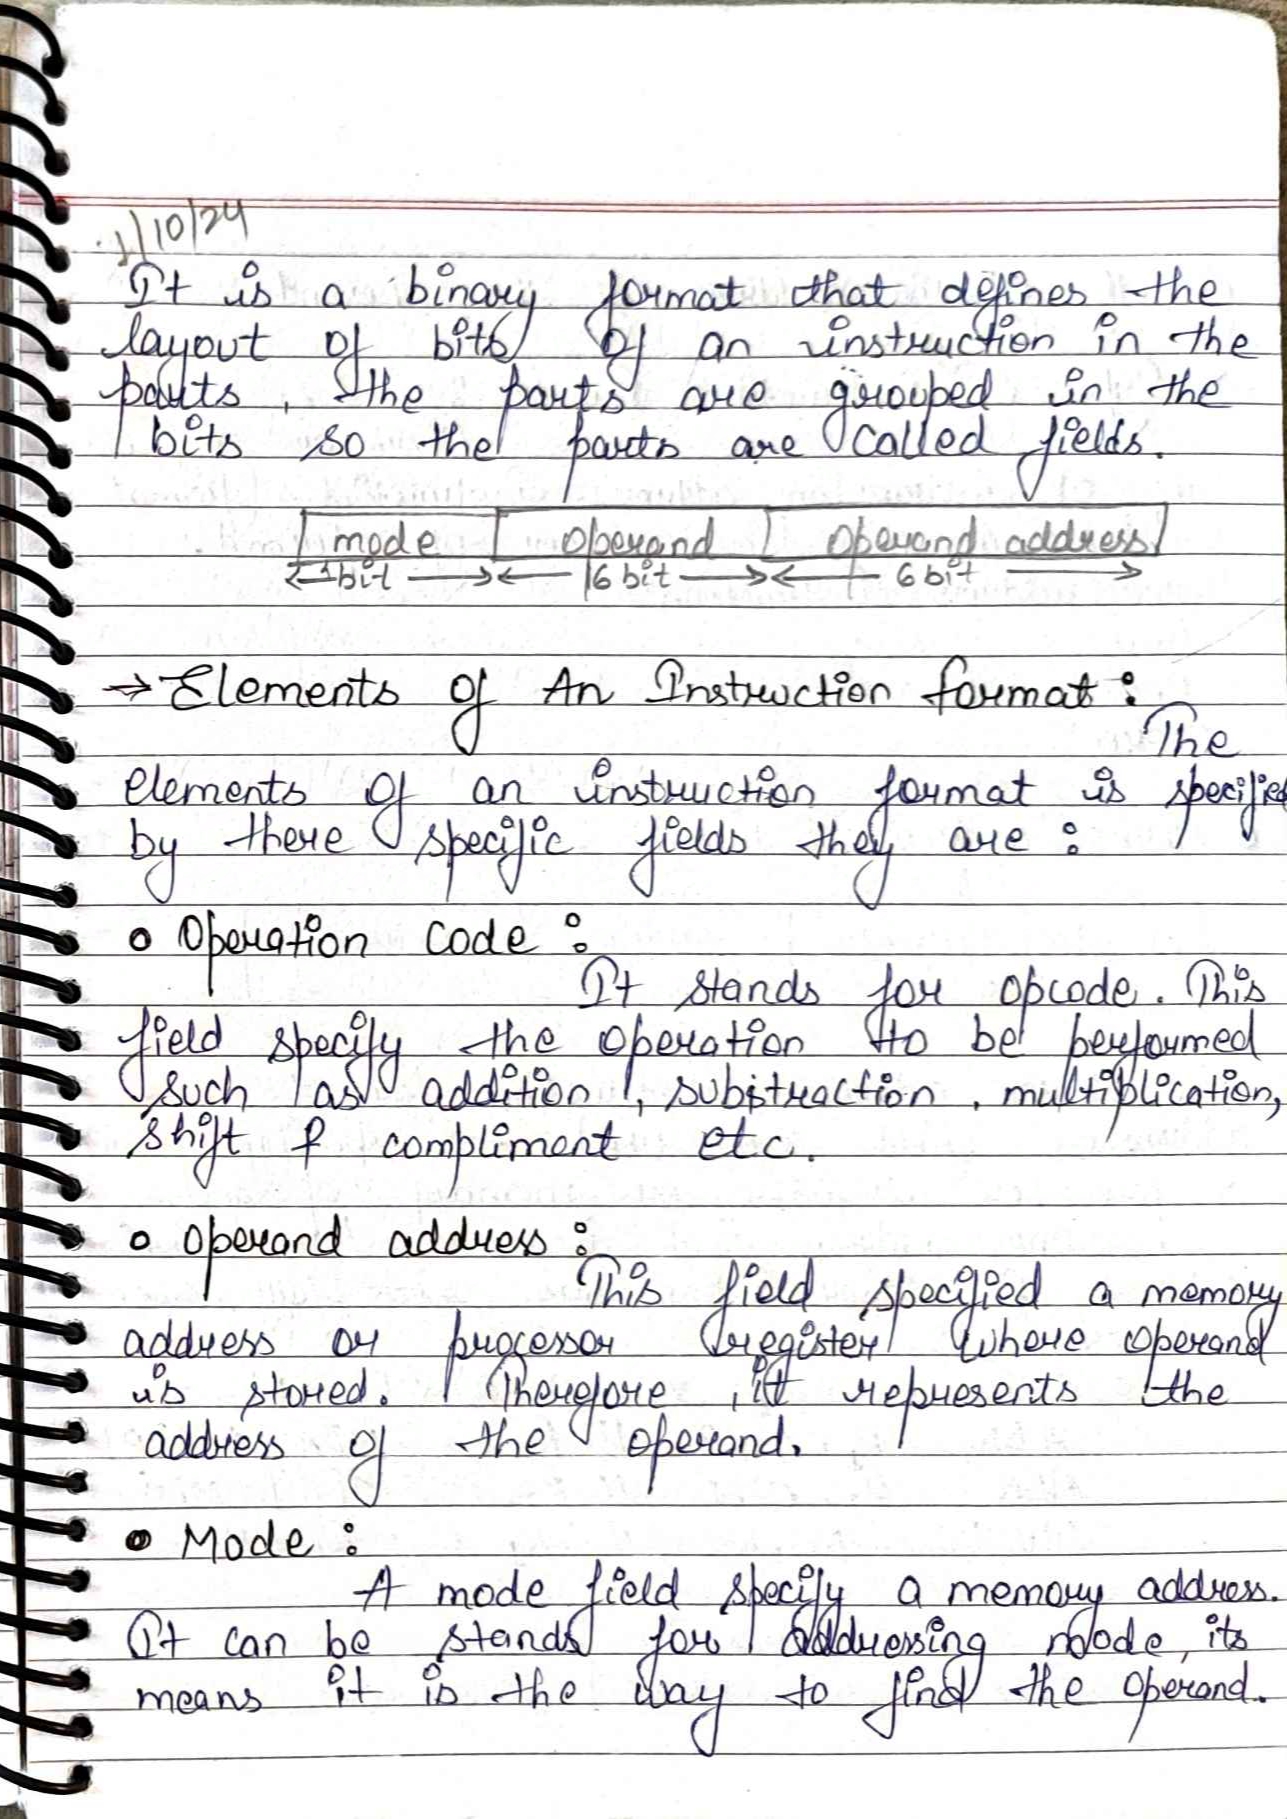 1/10/24
It is a binary format that defines the
layout of bits of an instruction in the
parts, the parts are grouped in the
bits so the parts are called fields.
mode operand operand address
1bit 16 bit 6 bit
→ Elements of An Instruction format :
The
elements of an instruction format is specified
by there specific fields they are :
o Operation code :
It stands for opcode. This
field specify the operation to be performed
such as addition, subtraction, multiplication,
shift & compliment etc.
o Operand address :
This field specified a memory
address or processor register where operand
is stored. Therefore, it represents the
address of the operand.
• Mode :
A mode field specify a memory address.
It can be stands for addressing mode, its
means it is the way to find the operand.